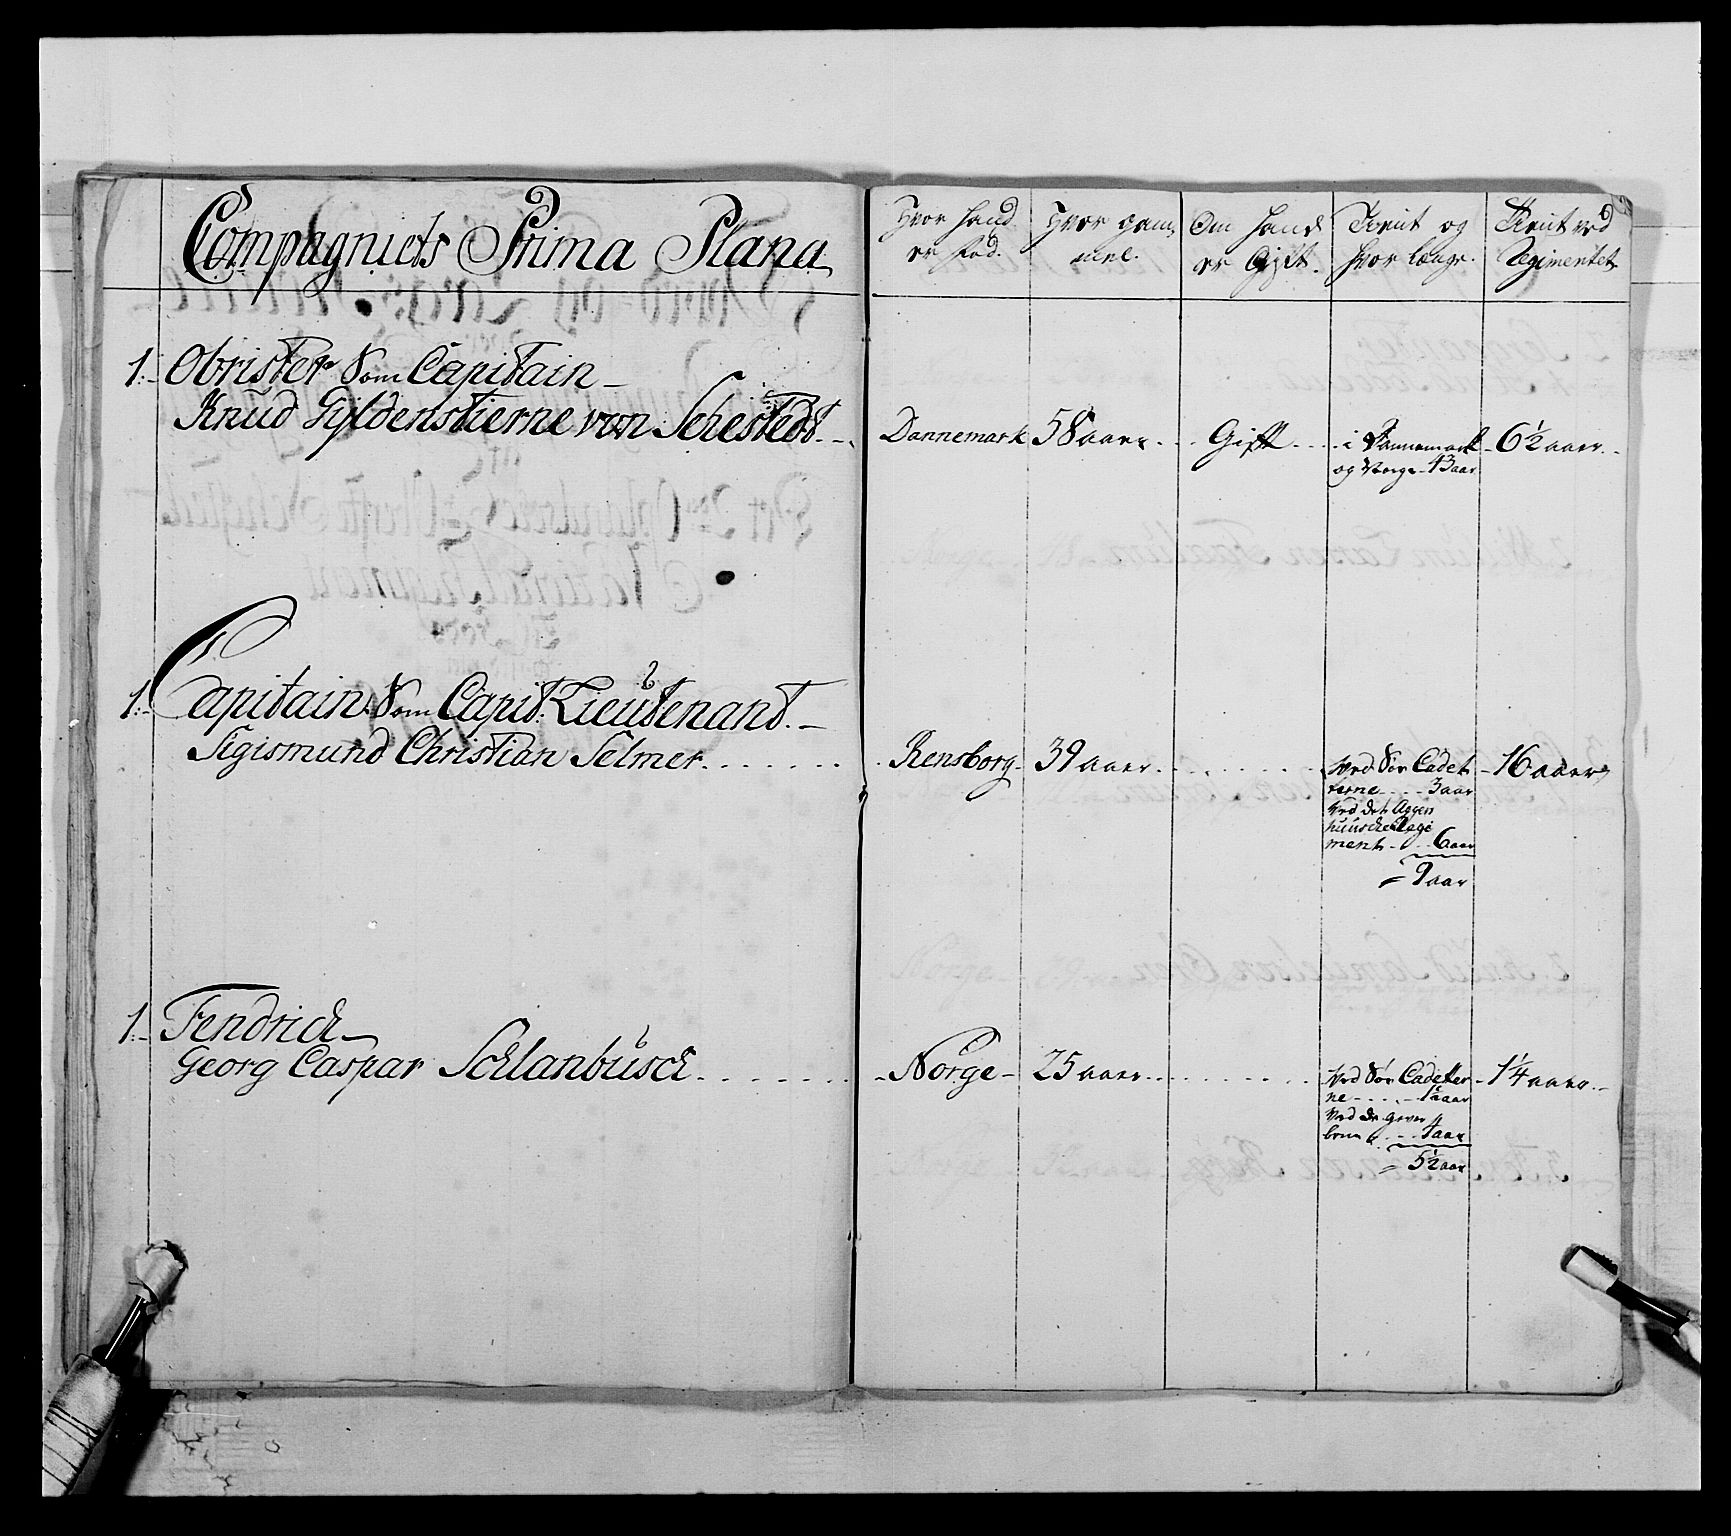 Compagniets Prima Plana
Hvor hand er Fød.
Hvor gammel.
Om hand er Gift.
Tient og hvor længe.
Tient ved Regimentet
1:- Obrister Som Capitain -
Knud Gyldenstierne von Sehestedt. -
Dannemark 58 aaer. Gift i Dannemark 6½ aaer.
og Norge 43 aar
1:- Capitain Som Capit: Lieutenant. -
Sigismund Christian Selmer.
Rensborg 39 aaer. Ved Søe Cadet 16 aaer
terne 3 aar
Ved det Aggers
huusche Regi
ment 6 aar
= 9 aar
1:- Fendrich
Georg Caspar Schlanbusch
Norge 25 aaer. Ved Søe Cadetter 1¼ aaer.
ne 1½ aar
Ved de gever
4 aar
= 5½ aar